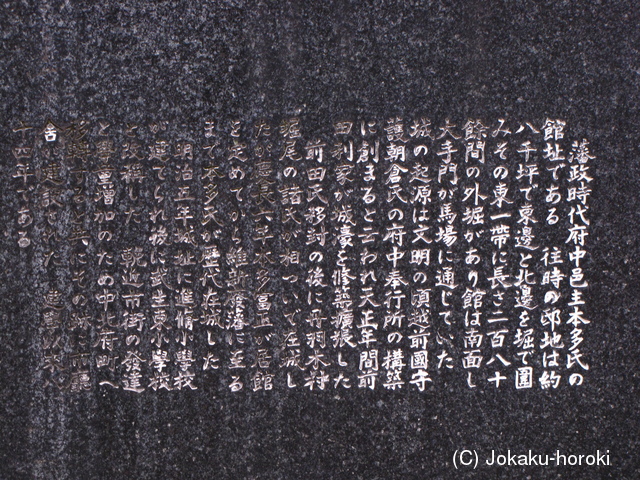 藩政時代府中邑主本多氏の
館址である 往時の邸地は約
八千坪で東邊と北邊を堀で圍
みその東一帶に長さ二百八十
餘間の外堀があり館は南面し
大手門が馬場に通じていた
城の起源は文明の頃越前國守
護朝倉氏の府中奉行所の構築
に創まると云われ天正年間前
田利家が城濠を修築擴張した
前田氏移封の後に丹羽木村
堀尾の諸氏が相ついで在城し
たが慶長六年本多富正が居館
を定めてから維新廢藩に至る
まで本多氏が歴代在城した
明治五年城址に進脩小學校
が建てられ後に武生東小學校
と改稱した 輓近市街の發達
と 增加のため中北府町へ
移轉 共にその
舍 建設された
十四年である
(C) Jokaku-horoki